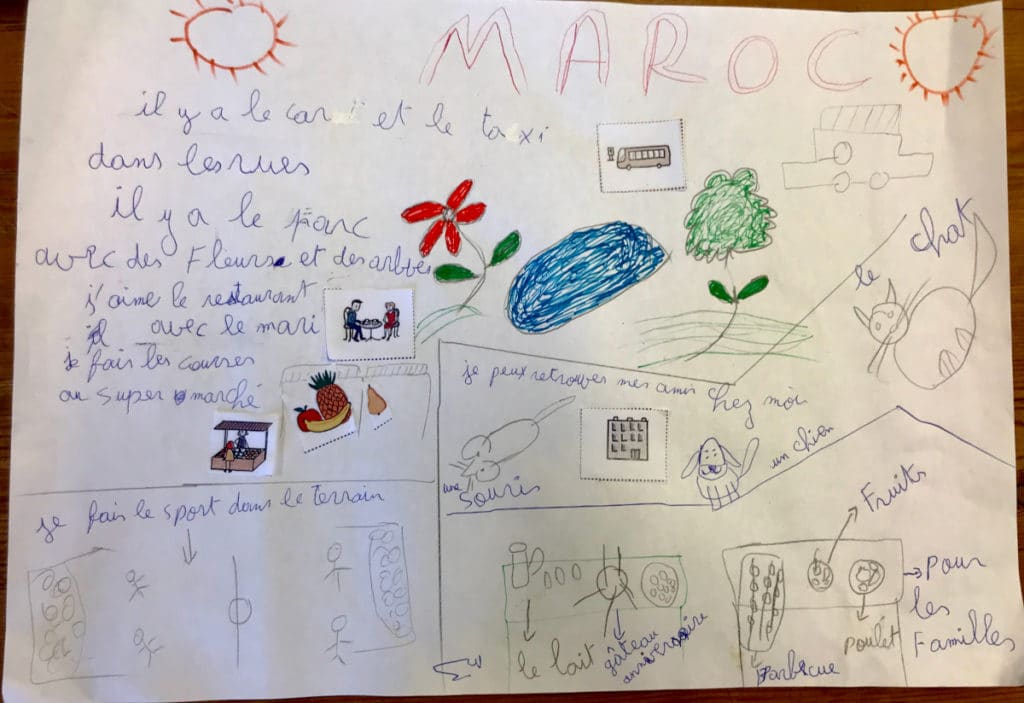 MAROC
il y a le car et le taxi
dans les rues
il y a le parc
avec des Fleurs et des arbres
j'aime le restaurant
avec le mari
je fais les courses
au super marché
le chat
je peux retrouver mes amis chez moi
une souris
un chien
je fais le sport dans le terrain
le lait
gâteau anniversaire
Fruits
poulet
Barbecue
pour
les
Familles